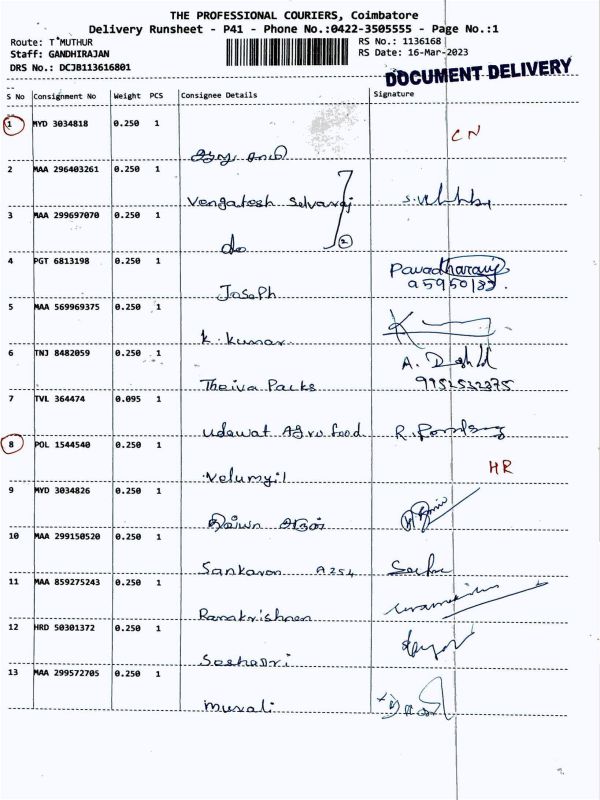 THE PROFESSIONAL COURIERS, Coimbatore
Delivery Runsheet - P41 - Phone No.:0422-3505555 - Page No.:1
Route: T*MUTHUR
RS No.: 1136168
Staff: GANDHIRAJAN
RS Date: 16-Mar-2023
DRS No.: DCJB113616801
DOCUMENT DELIVERY
S No Consignment No Weight PCS Consignee Details Signature
1 MYD 3034818 0.250 1 CN
2 MAA 296403261 0.250 1
Vengatesh Selvaraj
3 MAA 299697070 0.250 1
do 2
4 PGT 6813198 0.250 1
Joseph
5 MAA 569969375 0.250 1
K. Kumar
6 TNJ 8482059 0.250 1
Theiva Packs 9952522375
7 TVL 364474 0.095 1
Udawat Agro food
8 POL 1544540 0.250 1 HR
Velumyil
9 MYD 3034826 0.250 1
10 MAA 299150520 0.250 1
Sankaran A254
11 MAA 859275243 0.250 1
Ramakrishnan
12 HRD 50301372 0.250 1
Seshadri
13 MAA 299572705 0.250 1
Murali